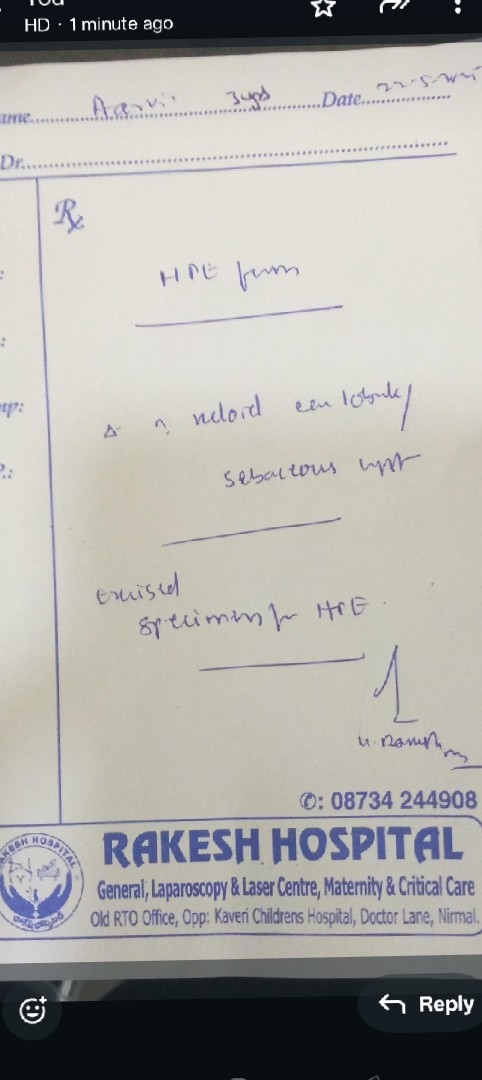 HD · 1 minute ago
ame Aarvi 3yrs Date 22-5-
Dr.
Rx
HPE form
Δ ? keloid ear lobule/
sebaceous cyst
Excised
specimens for HPE.
✆: 08734 244908
RAKESH HOSPITAL
RAKESH HOSPITAL
General, Laparoscopy & Laser Centre, Maternity & Critical Care
Old RTO Office, Opp: Kaveri Childrens Hospital, Doctor Lane, Nirmal.
Reply